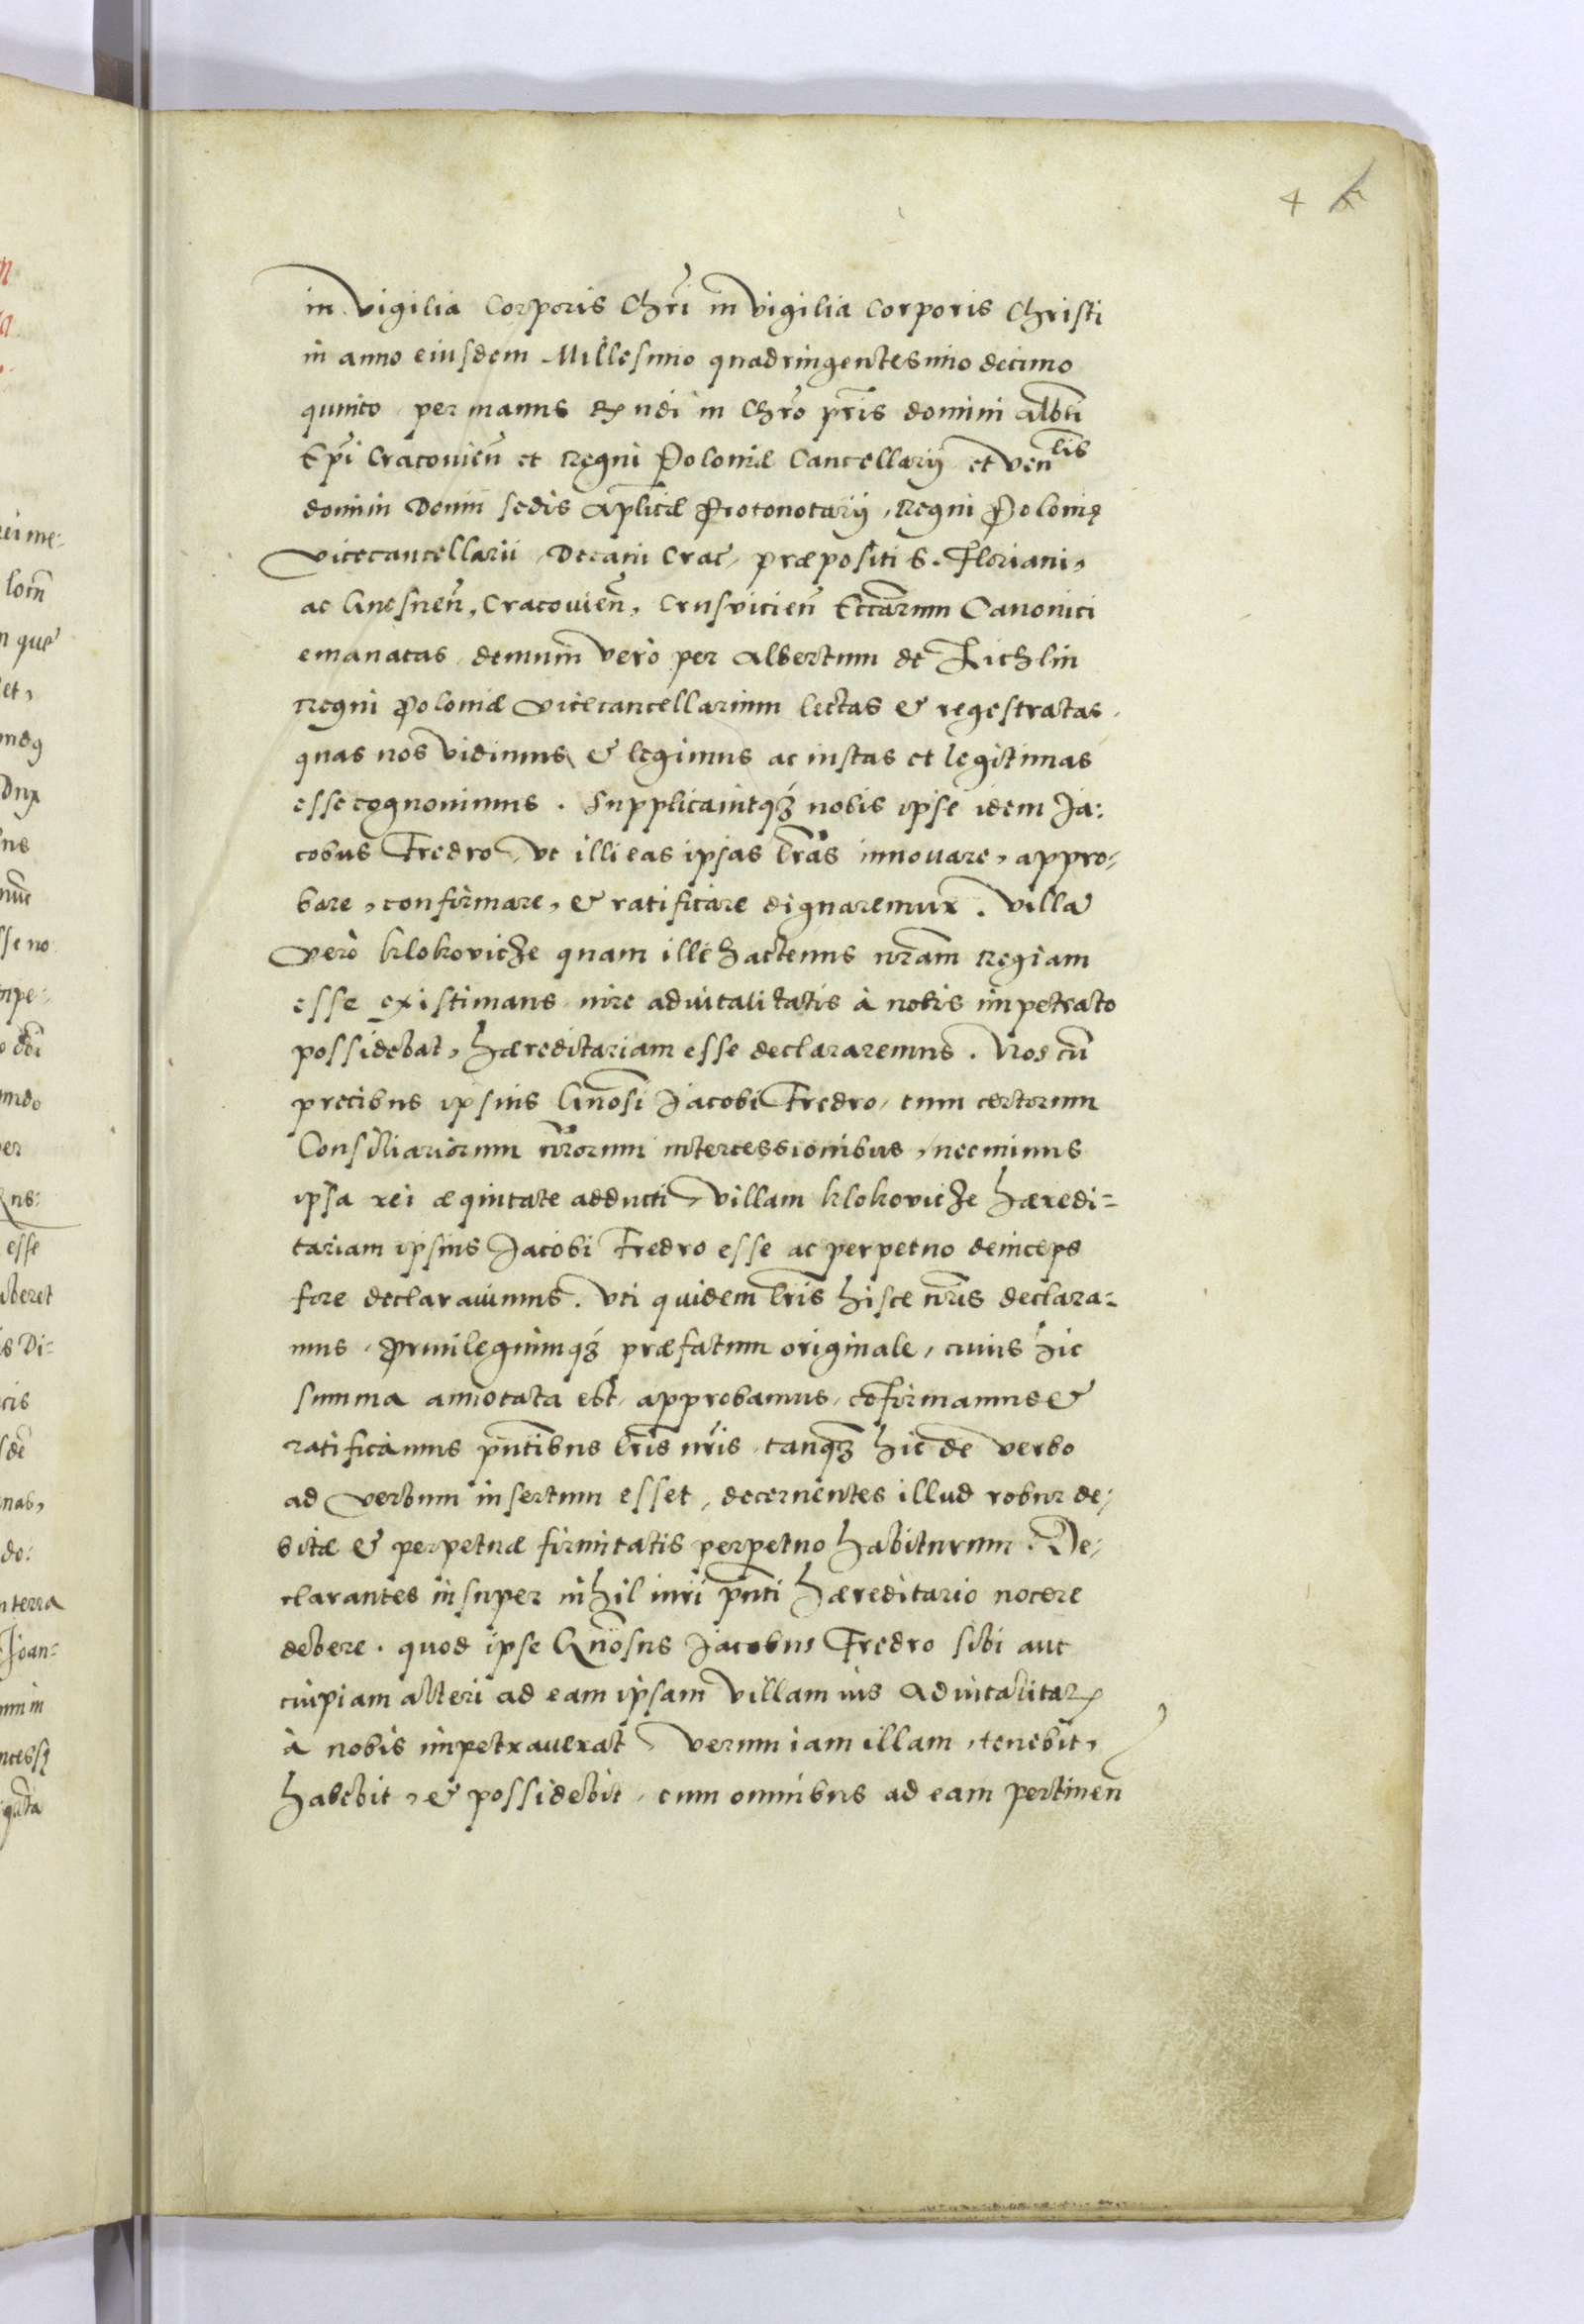 4
in vigilia Corporis Chr̃i in vigilia Corporis Christi
in anno eiusdem Millesimo quadringentesimo decimo
quinto per manus Rndi in Chr̃o pr̃is domini Alb̃ti
Ep̃i Cracovieñ et Regni Poloniæ Cancellarij et Venlis
domini Donin sedis Apl̃icæ Protonotarij, Regni Polonię
Vicecancellarii Decani Crac, præpositi S. Floriani,
ac Gnesneñ, Cracovieñ, Crusvicieñ Eccl̃arum Canonici
emanatas demum verò per Albertum de Zichlin
Regni Poloniæ Vicecancellarium lectas & regestratas,
quas nos vidimus & legimus ac iustas et legitimas
esse cognovimus. Supplicavitq3 nobis ipse idem Ja:
cobus Fredro, vt illi eas ipsas lr̃as innouare, appro:
bare, confirmare, & ratificare dignaremur. Villã
verò klokovicze quam ille hactenus nr̃am Regiam
esse existimans iure aduitalitatis à nobis impetrato
possidebat, hæreditariam esse declararemus. Nos cũ
precibus ipsius Gñosi Jacobi Fredro, tum certorum
Consiliariorum nr̃orum intercessionibus, nec minus
ipsa rei æquitate adducti, villam klokovicze hæredi=
tariam ipsius Jacobi Fredro esse ac perpetuo deinceps
fore declarauimus. Vti quidem lr̃is hisce nr̃is declara=
mus, Priuilegiumq3 præfatum originale, cuius hic
summa annotata est, approbamus, cõfirmamus &
ratificamus pñtibus lr̃is nr̃is, tanq3 hic de verbo
ad verbum insertum esset, decernentes illud robur de:
bitæ & perpetuæ firmitatis perpetuo habiturum. De:
clarantes insuper nihil iuri pñti hæreditario nocere
debere. quod ipse Gñosus Jacobus Fredro sibi aut
cuipiam alteri ad eam ipsam villam ius Aduitalitar
à nobis impetrauerat, verum iam illam, tenebit,
habebit, & possidebit, cum omnibus ad eam pertineñ